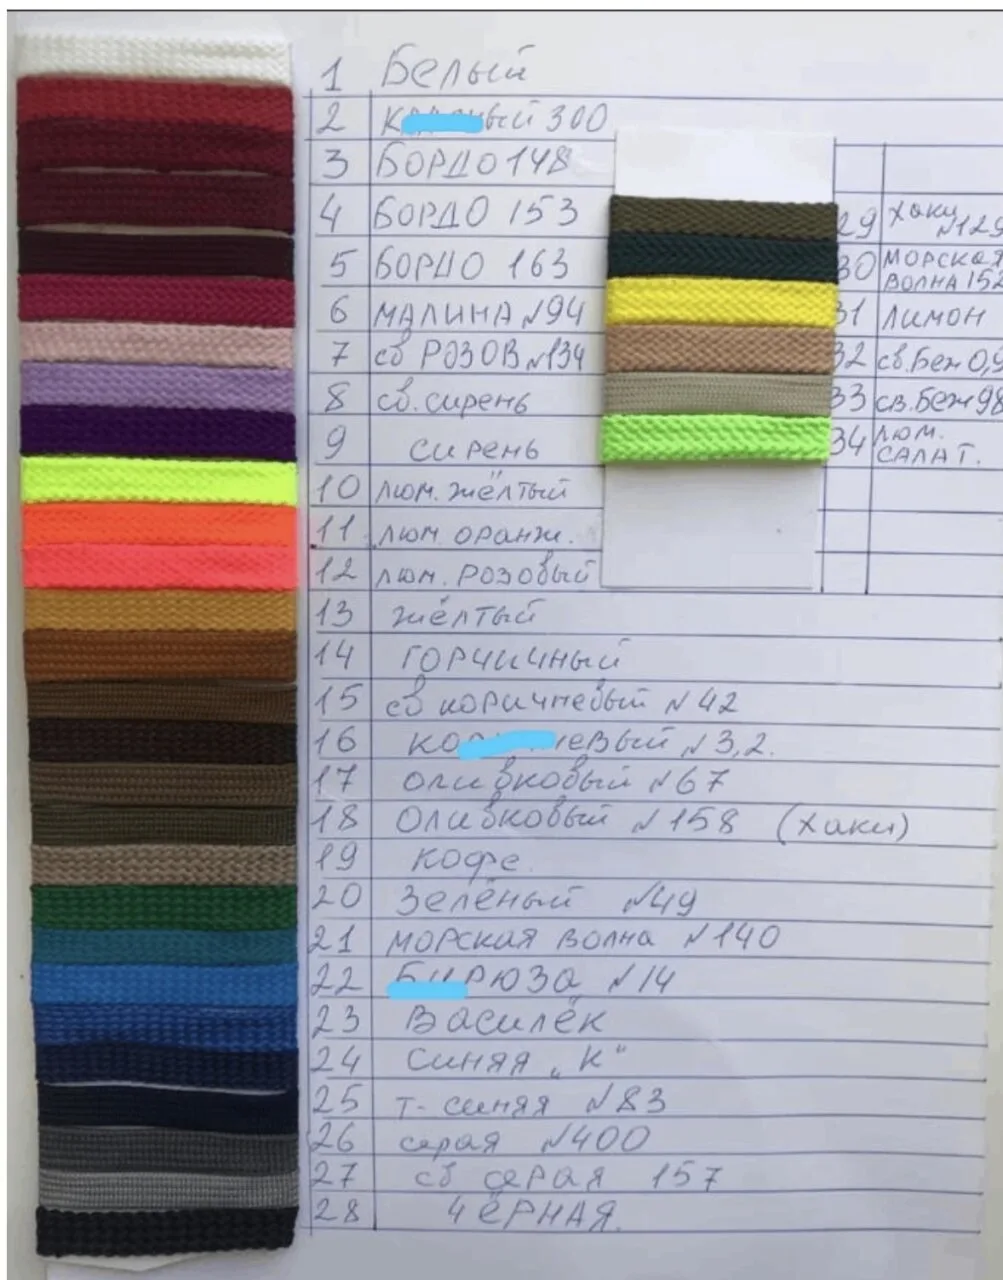 1 Белый
2 300
3 БОРДО 148
4 БОРДО 153
5 БОРДО 163
6 МАЛИНА №94
7 св РОЗОВ №134
8 св. сирень
9 сирень
10 люм. жёлтый
11 люм. оранж.
12 люм. розовый
13 жёлтый
14 горчичный
15 св коричневый №42
16 №3,2.
17 оливковый №67
18 оливковый №158 (хаки)
19 кофе
20 зелёный №49
21 морская волна №140
22 №14
23 Василёк
24 синяя „К“
25 т-синяя №83
26 серая №400
27 св серая 157
28 чёрная.
29 хаки №129
30 МОРСКАЯ
ВОЛНА 152
31 лимон
32 св. Беж
33 св. Беж 98
34 люм.
САЛАТ.